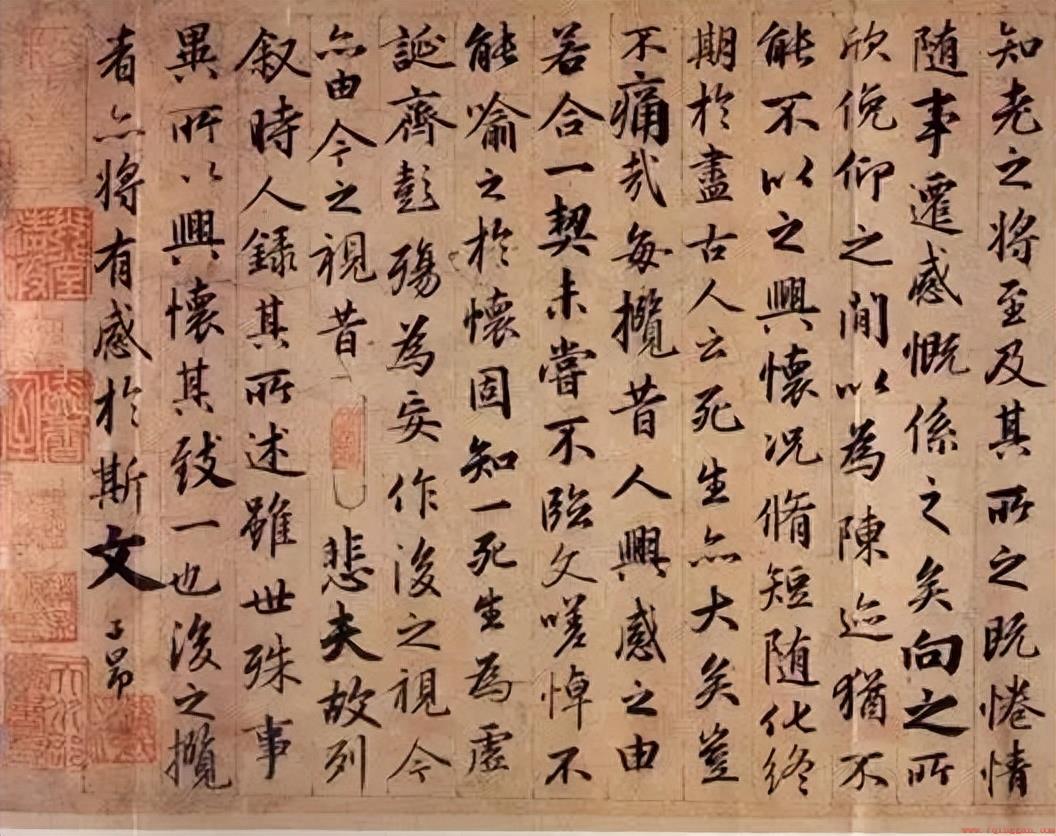 知老之将至及其所之既惓情
随事遷感慨係之矣向之所
欣俛仰之間以為陳迹猶不
能不以之興懷况脩短随化終
期於盡古人云死生亦大矣豈
不痛哉每攬昔人興感之由
若合一契未嘗不臨文嗟悼不
能喻之於懷固知一死生為虚
誕齊彭殤為妄作後之視今
亦由今之視昔悲夫故列
叙時人録其所述雖世殊事
異所以興懷其致一也後之攬
者亦将有感於斯文 子昂